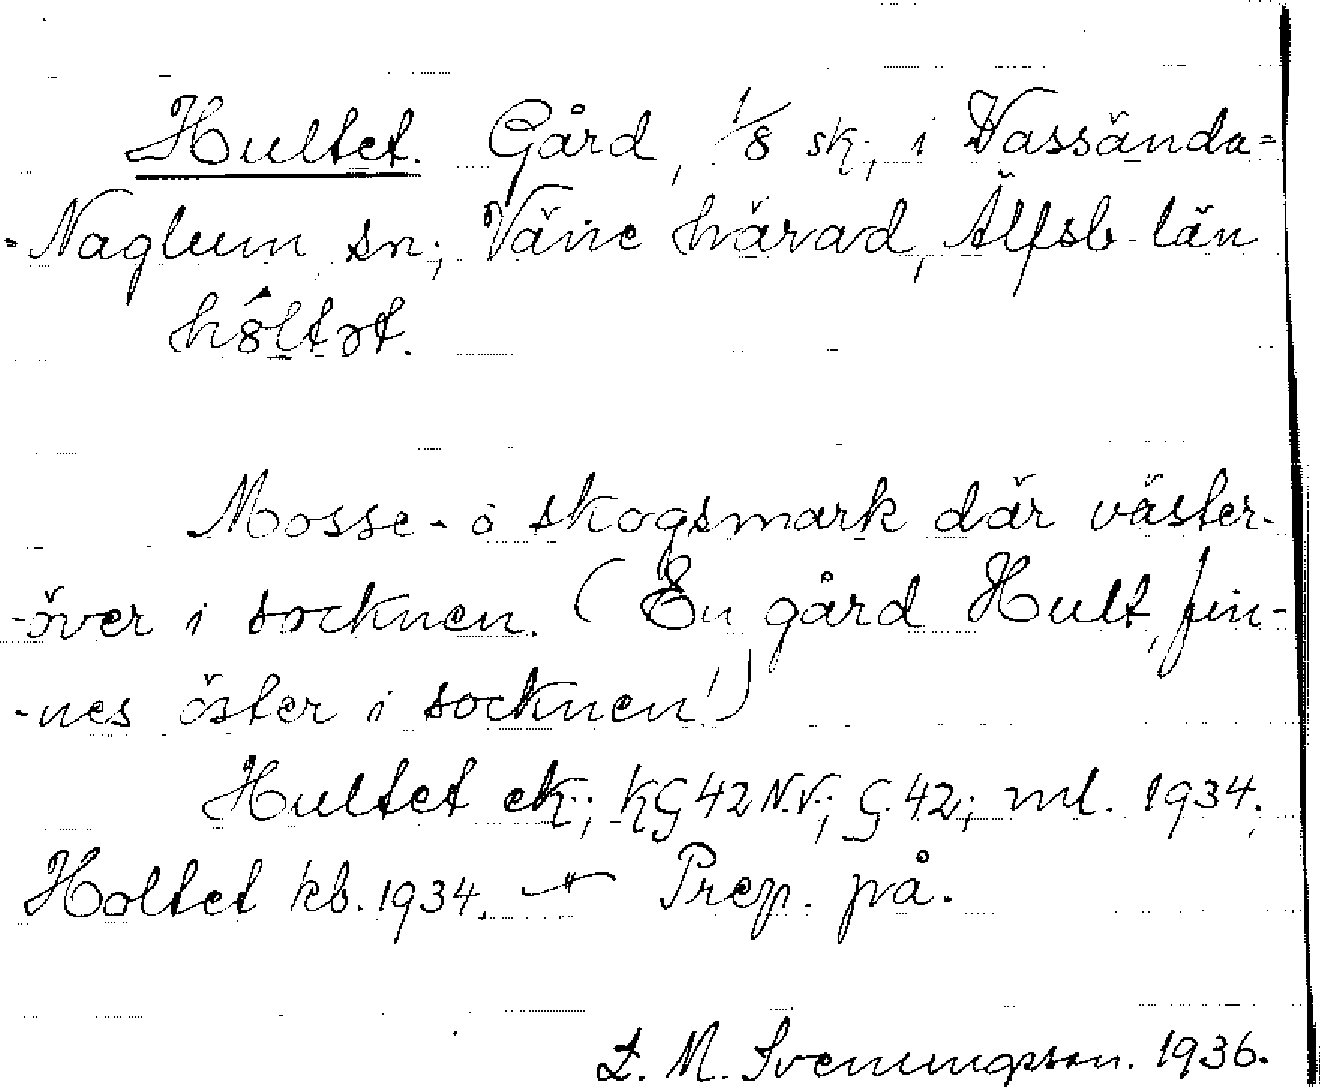 Hultet. Gård, 1/8 sk., i Vassända-
-Naglum sn; Väne härad, Älfsb län
Mosse- o skogsmark där väster-
-över i socknen. (En gård Hult, fin-
-nes öster i socknen!)
Hultet ek.; KG 42 N.V.; G. 42; ml. 1934.;
Holtet kb. 1934. Prep. på.
M. Svenungsson. 1936.